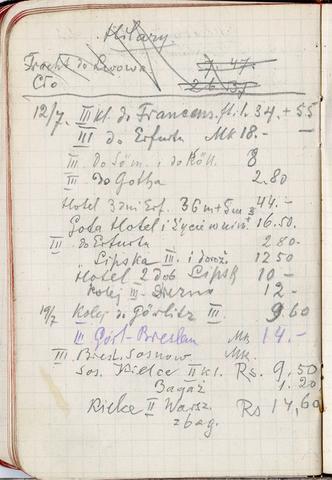 Hilary
Fracht do Lwowa 7.47.
Cło 2.6.37
12/7. III kl. do Francens. Mk. 34.+55
III do Erfurtu Mk 18.–
III. Do i do Köll. 8
III Do Gotha 2.80
Hotel 3 dni Erf. 36m+8m 44.–
Gota Hotel i życie w nim 16.50.
III do Erfurtu 2 80
" Lipska III. i doroż. 12 50
Hotel 2 dob Lipsk 10 –
Kolej III – Drezna 12 –
19/7 Kolej do Görlitz III. 9.60
III Görl-Breslau Mk 14.–
III. Bresl. Sosnow Mk.
Sos. Kielce II kl. Rs. 9.50
Bagaż 1.20
Kielce II Warsz. Rs 14,60
z bag.